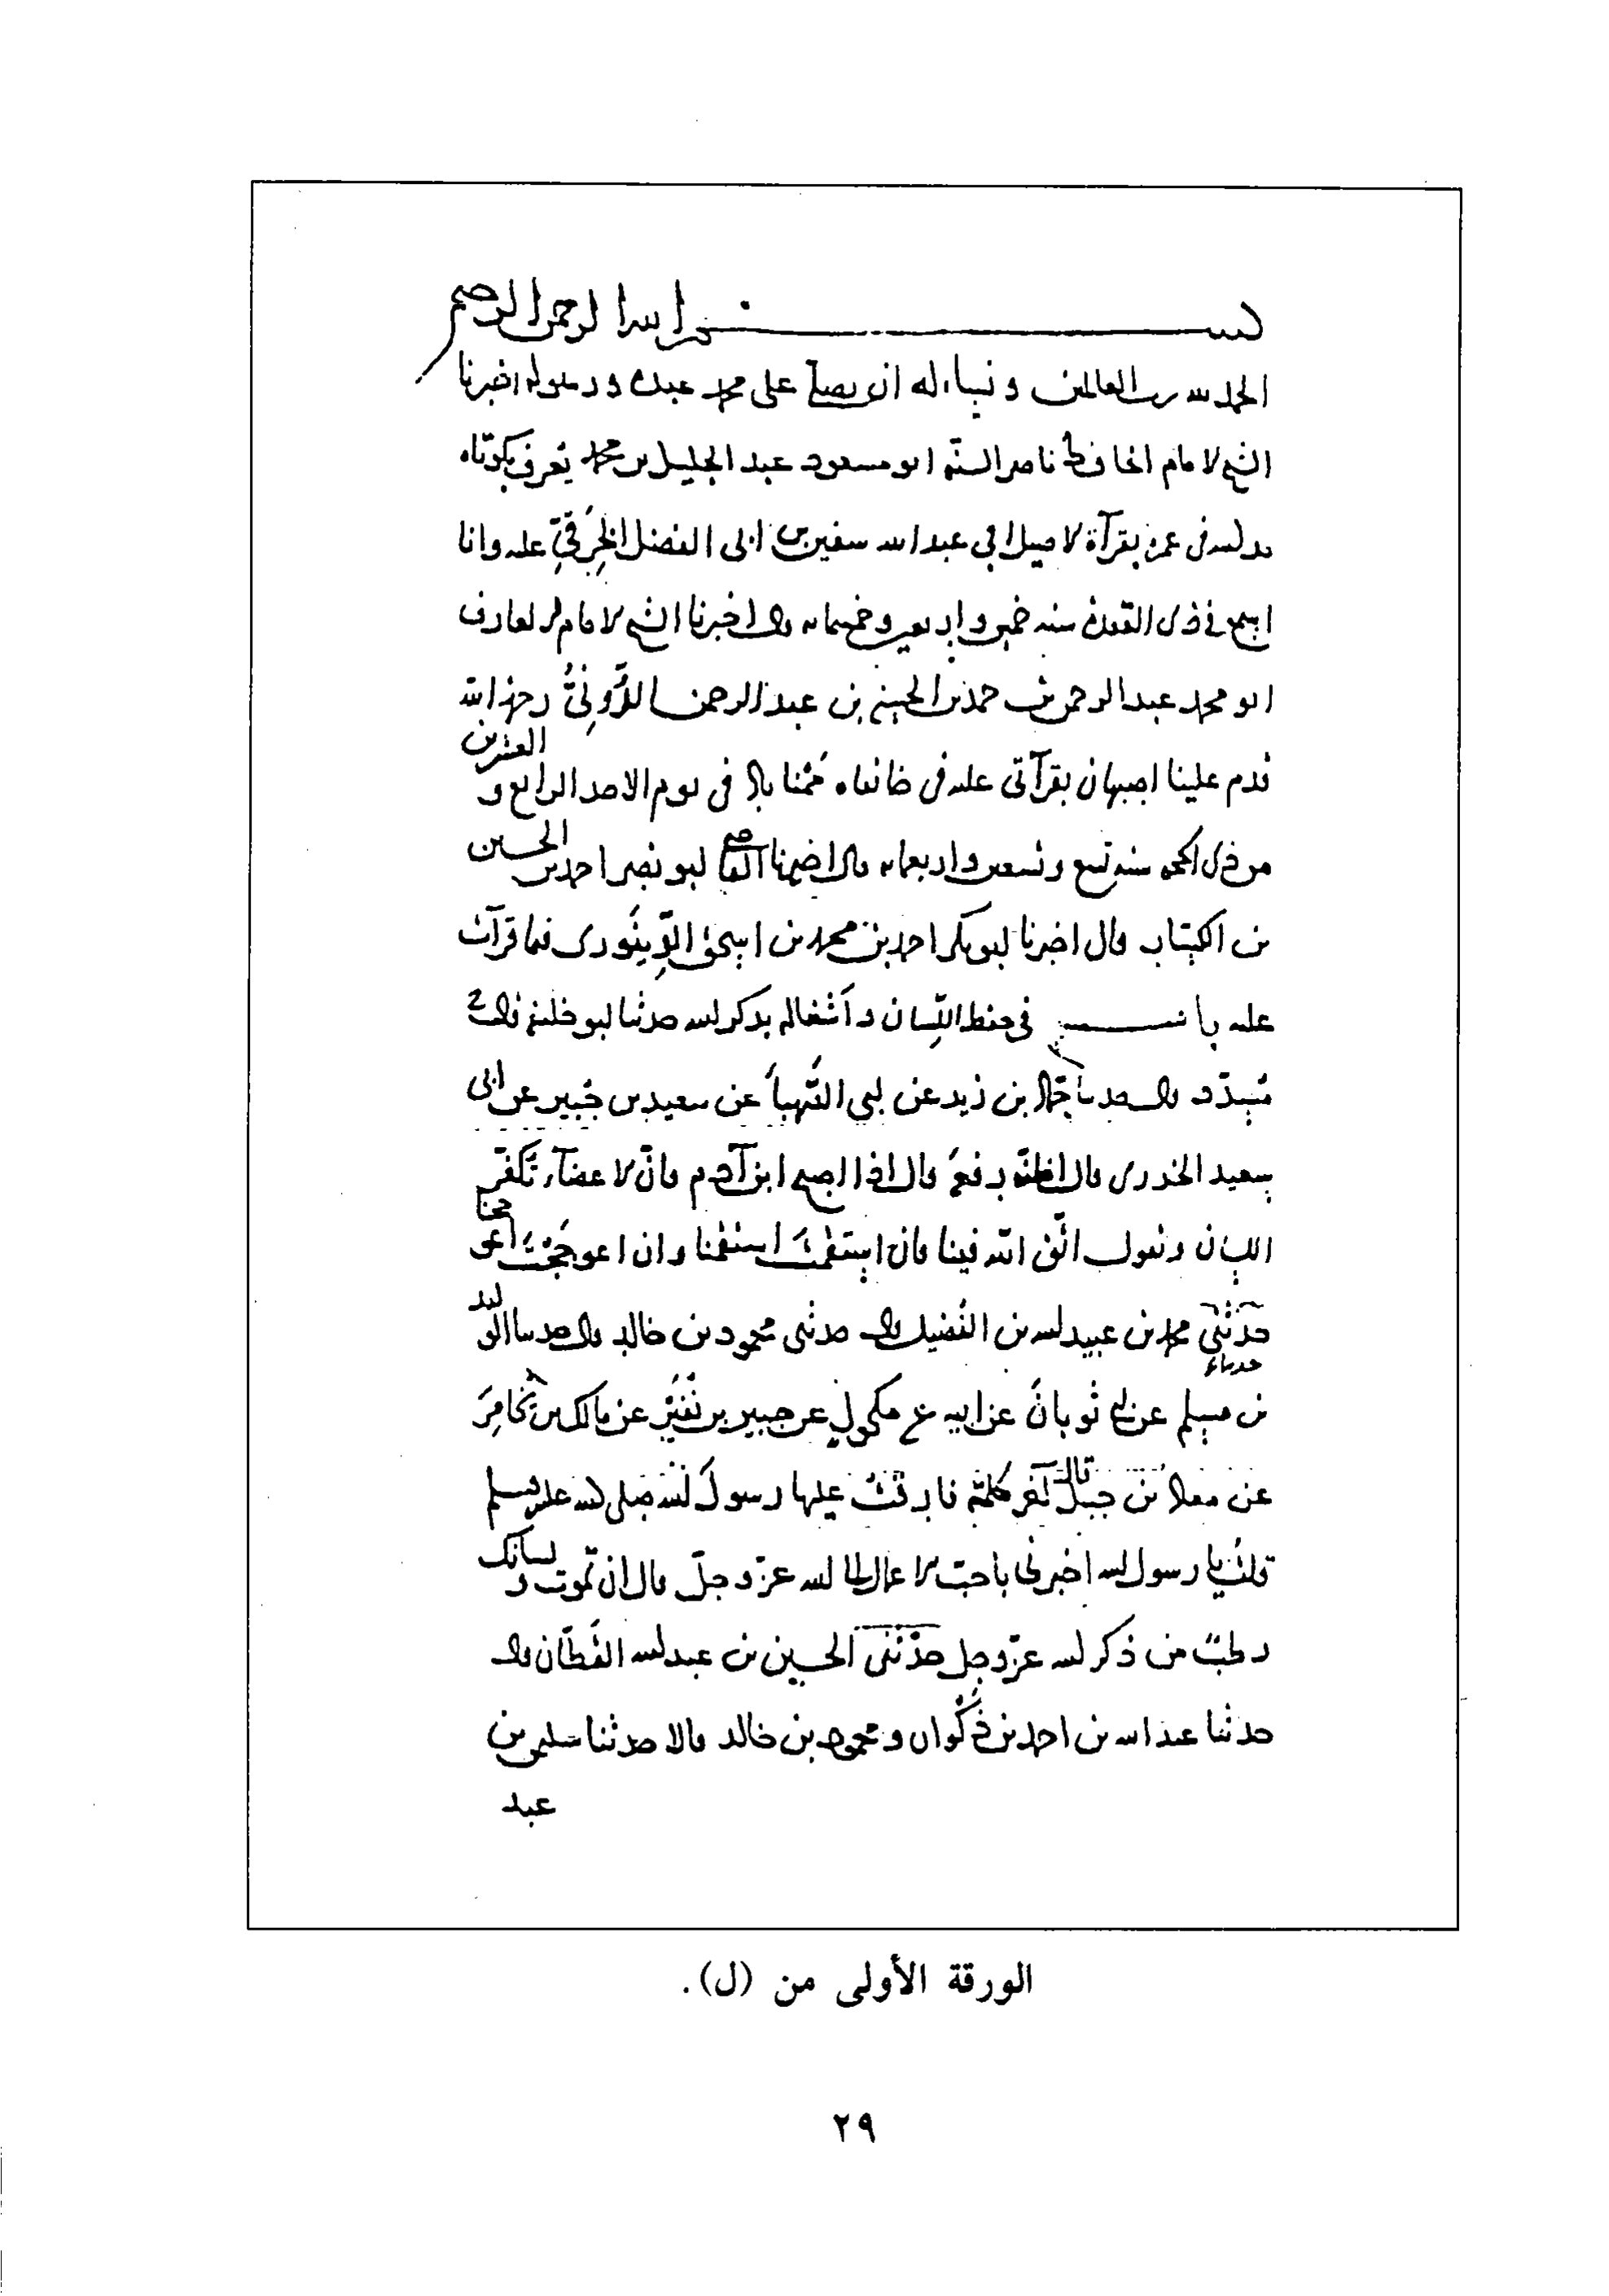 بسم الله الرحمن الرحيم
الحمد لله رب العالمين ونساله ان يصلي على محمد عبده ورسوله اخبرنا
الشيخ الامام الحافظ ناصر السنة ابو مسعود عبد الجليل بن محمد يعرف بكوتاه
بقرآة ابي عبد الله سفين بن ابى الفضل الخِرَقيّ عليه وانا
اسمع في ذى القعدة سنه خمس واربعين وخمسمايه قال اخبرنا الشيخ الامام العارف
ابو محمد عبد الرحمن بن حمد بن الحسين بن عبد الرحمن الدُّونِيُّ رحمه الله
قدم علينا اصبهان بقرآتى عليه في خانقاه في يوم الاحد الرابع و العشرين
من ذى الحجه سنه تسع وتسعين واربعمايه قال اخبرنا القاضي ابو نصر احمد بن الحسين
بن الكسّار قال اخبرنا ابو بكر احمد بن محمد بن اسحق الدِّينَوَرى فيما قرآت
عليه باب في حفظ اللِّسان وآشغاله بذكر الله حدثنا ابو خليفة قال ح
مُسدّد قال حدثنا حمّاد بن زيد عن ابي الصَّهبآ عن سعيد بن جُبير عن ابى
سعيد الخدرى قال اظنّه رفعَهُ قال اذا اصبح ابن آدم فانّ الاعضآء تكفّر
اللسان وتقول اتّق الله فينا فان استقمتَ استقمنا وان اعوجَجْتَ اعوججنا
حدّثنى محمد بن عبيد الله بن الفُضيل قال حدثنى محمود بن خالد قال حدثنا الوليد
بن مسلم عن ابن ثوبانَ عن ابيه عن مكحولٍ عن جبير بن نُفَيْر عن مالك بن يُخَامِرَ
عن معاذ بن جبل قال آخر كلمةٍ فارقتُ عليها رسولَ الله صلى الله عليه وسلم
قلتُ يا رسول الله اخبرني باحبّ الاعمال الى الله عزّ وجلّ قال ان تموت و لسانك
رطبٌ من ذكر الله عزّ وجل حدّثنى الحسين بن عبد الله القطّان قال
حدثنا عبد الله بن احمد بن ذَكْوان ومحمود بن خالد قالا حدثنا سليمن بن
عبد
الورقة الأولى من (ل).
٢٩